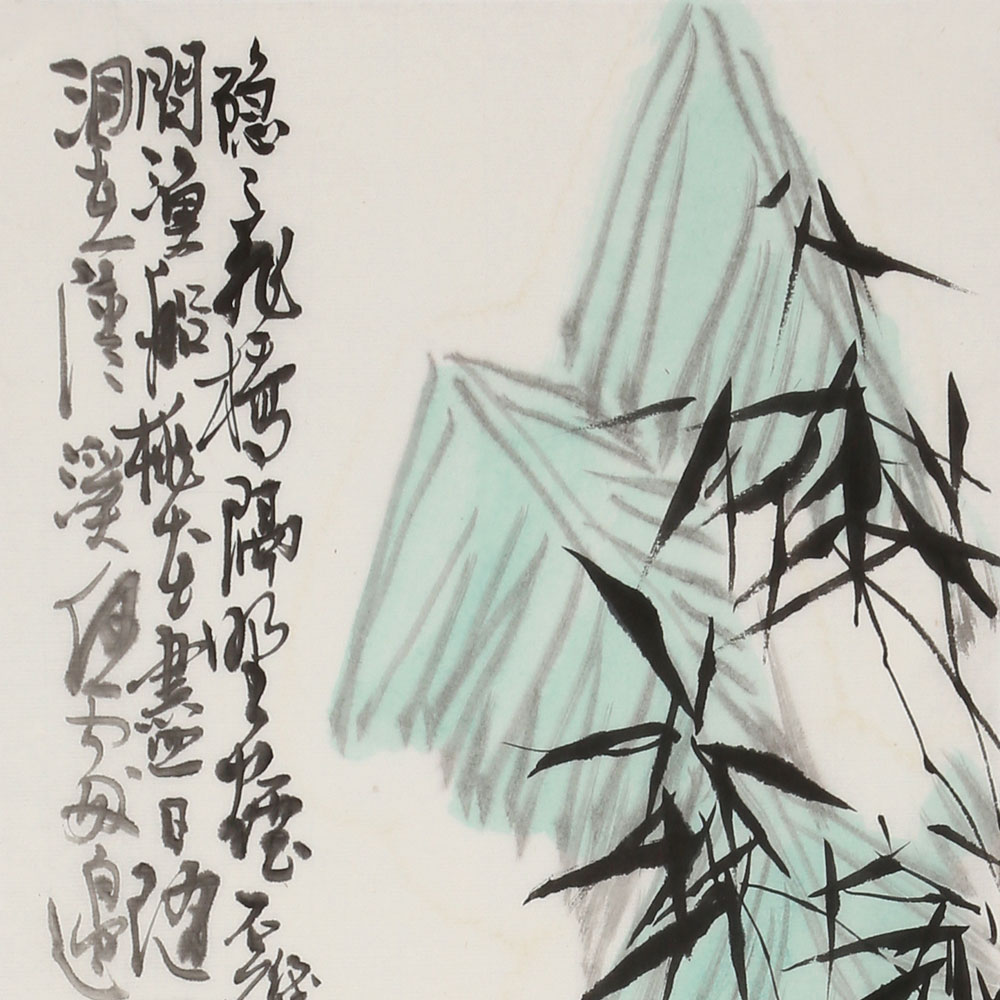 隐〻飛橋隔野煙石磯
問漁船桃花盡日隨
洞在清溪何處邊